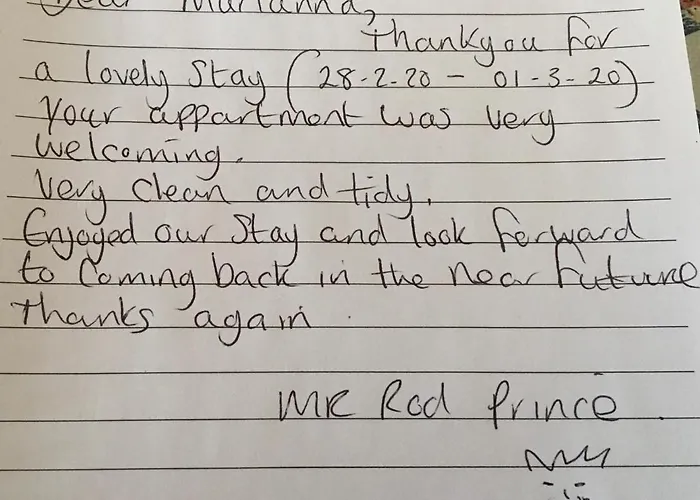 Dear Marianna,
Thankyou for
a lovely stay (28-2-20 - 01-3-20)
Your appartment was very
welcoming.
Very clean and tidy.
Enjoyed our stay and look forward
to coming back in the near future
thanks again.
MR Rod Prince